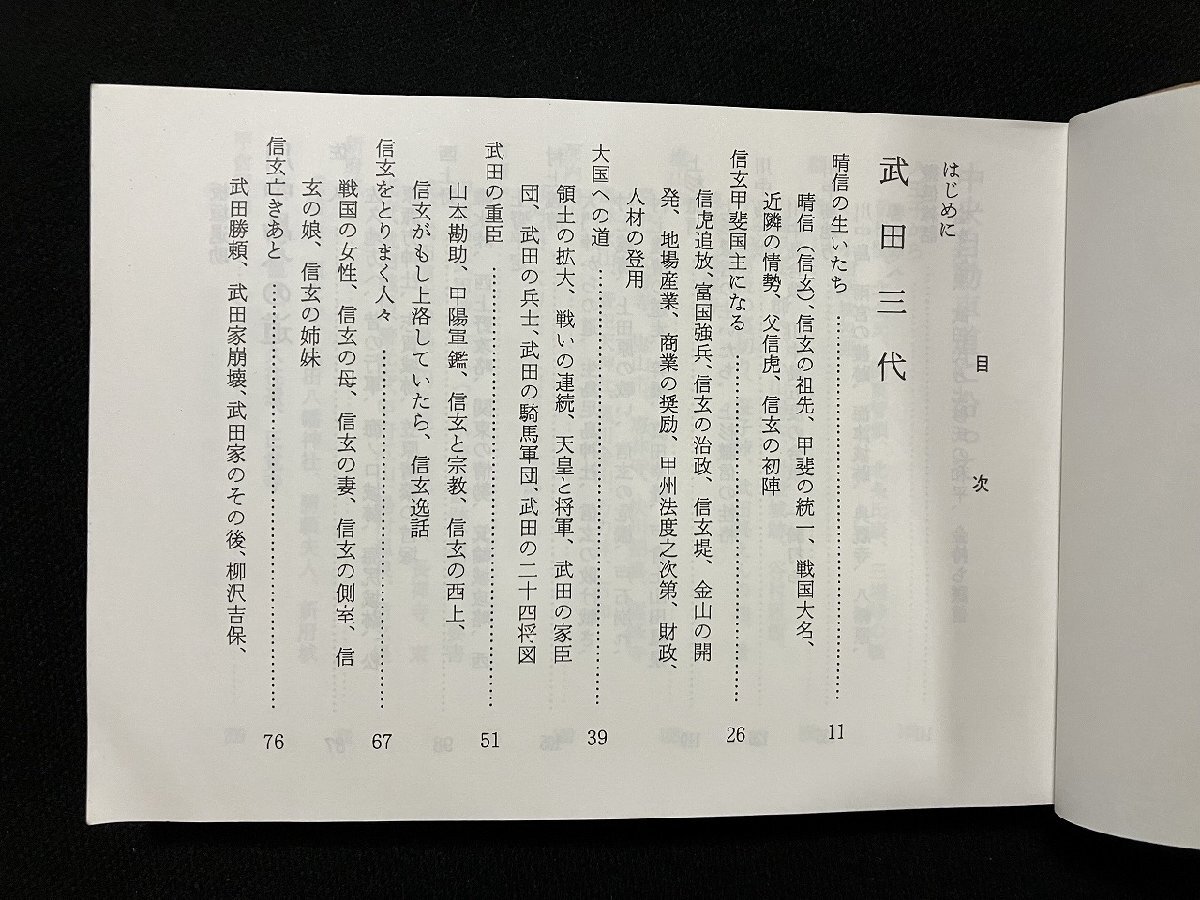 目次
はじめに
武田三代
晴信の生いたち……………………11
晴信（信玄）、信玄の祖先、甲斐の統一、戦国大名、
近隣の情勢、父信虎、信玄の初陣
信玄甲斐国主になる……………………26
信虎追放、富国強兵、信玄の治政、信玄堤、金山の開
発、地場産業、商業の奨励、甲州法度之次第、財政、
人材の登用
大国への道……………………39
領土の拡大、戦いの連続、天皇と将軍、武田の家臣
団、武田の兵士、武田の騎馬軍団、武田の二十四将図
武田の重臣……………………51
山本勘助、甲陽軍鑑、信玄と宗教、信玄の西上、
信玄がもし上洛していたら、信玄逸話
信玄をとりまく人々……………………67
戦国の女性、信玄の母、信玄の妻、信玄の側室、信
玄の娘、信玄の姉妹
信玄亡きあと……………………76
武田勝頼、武田家崩壊、武田家のその後、柳沢吉保、